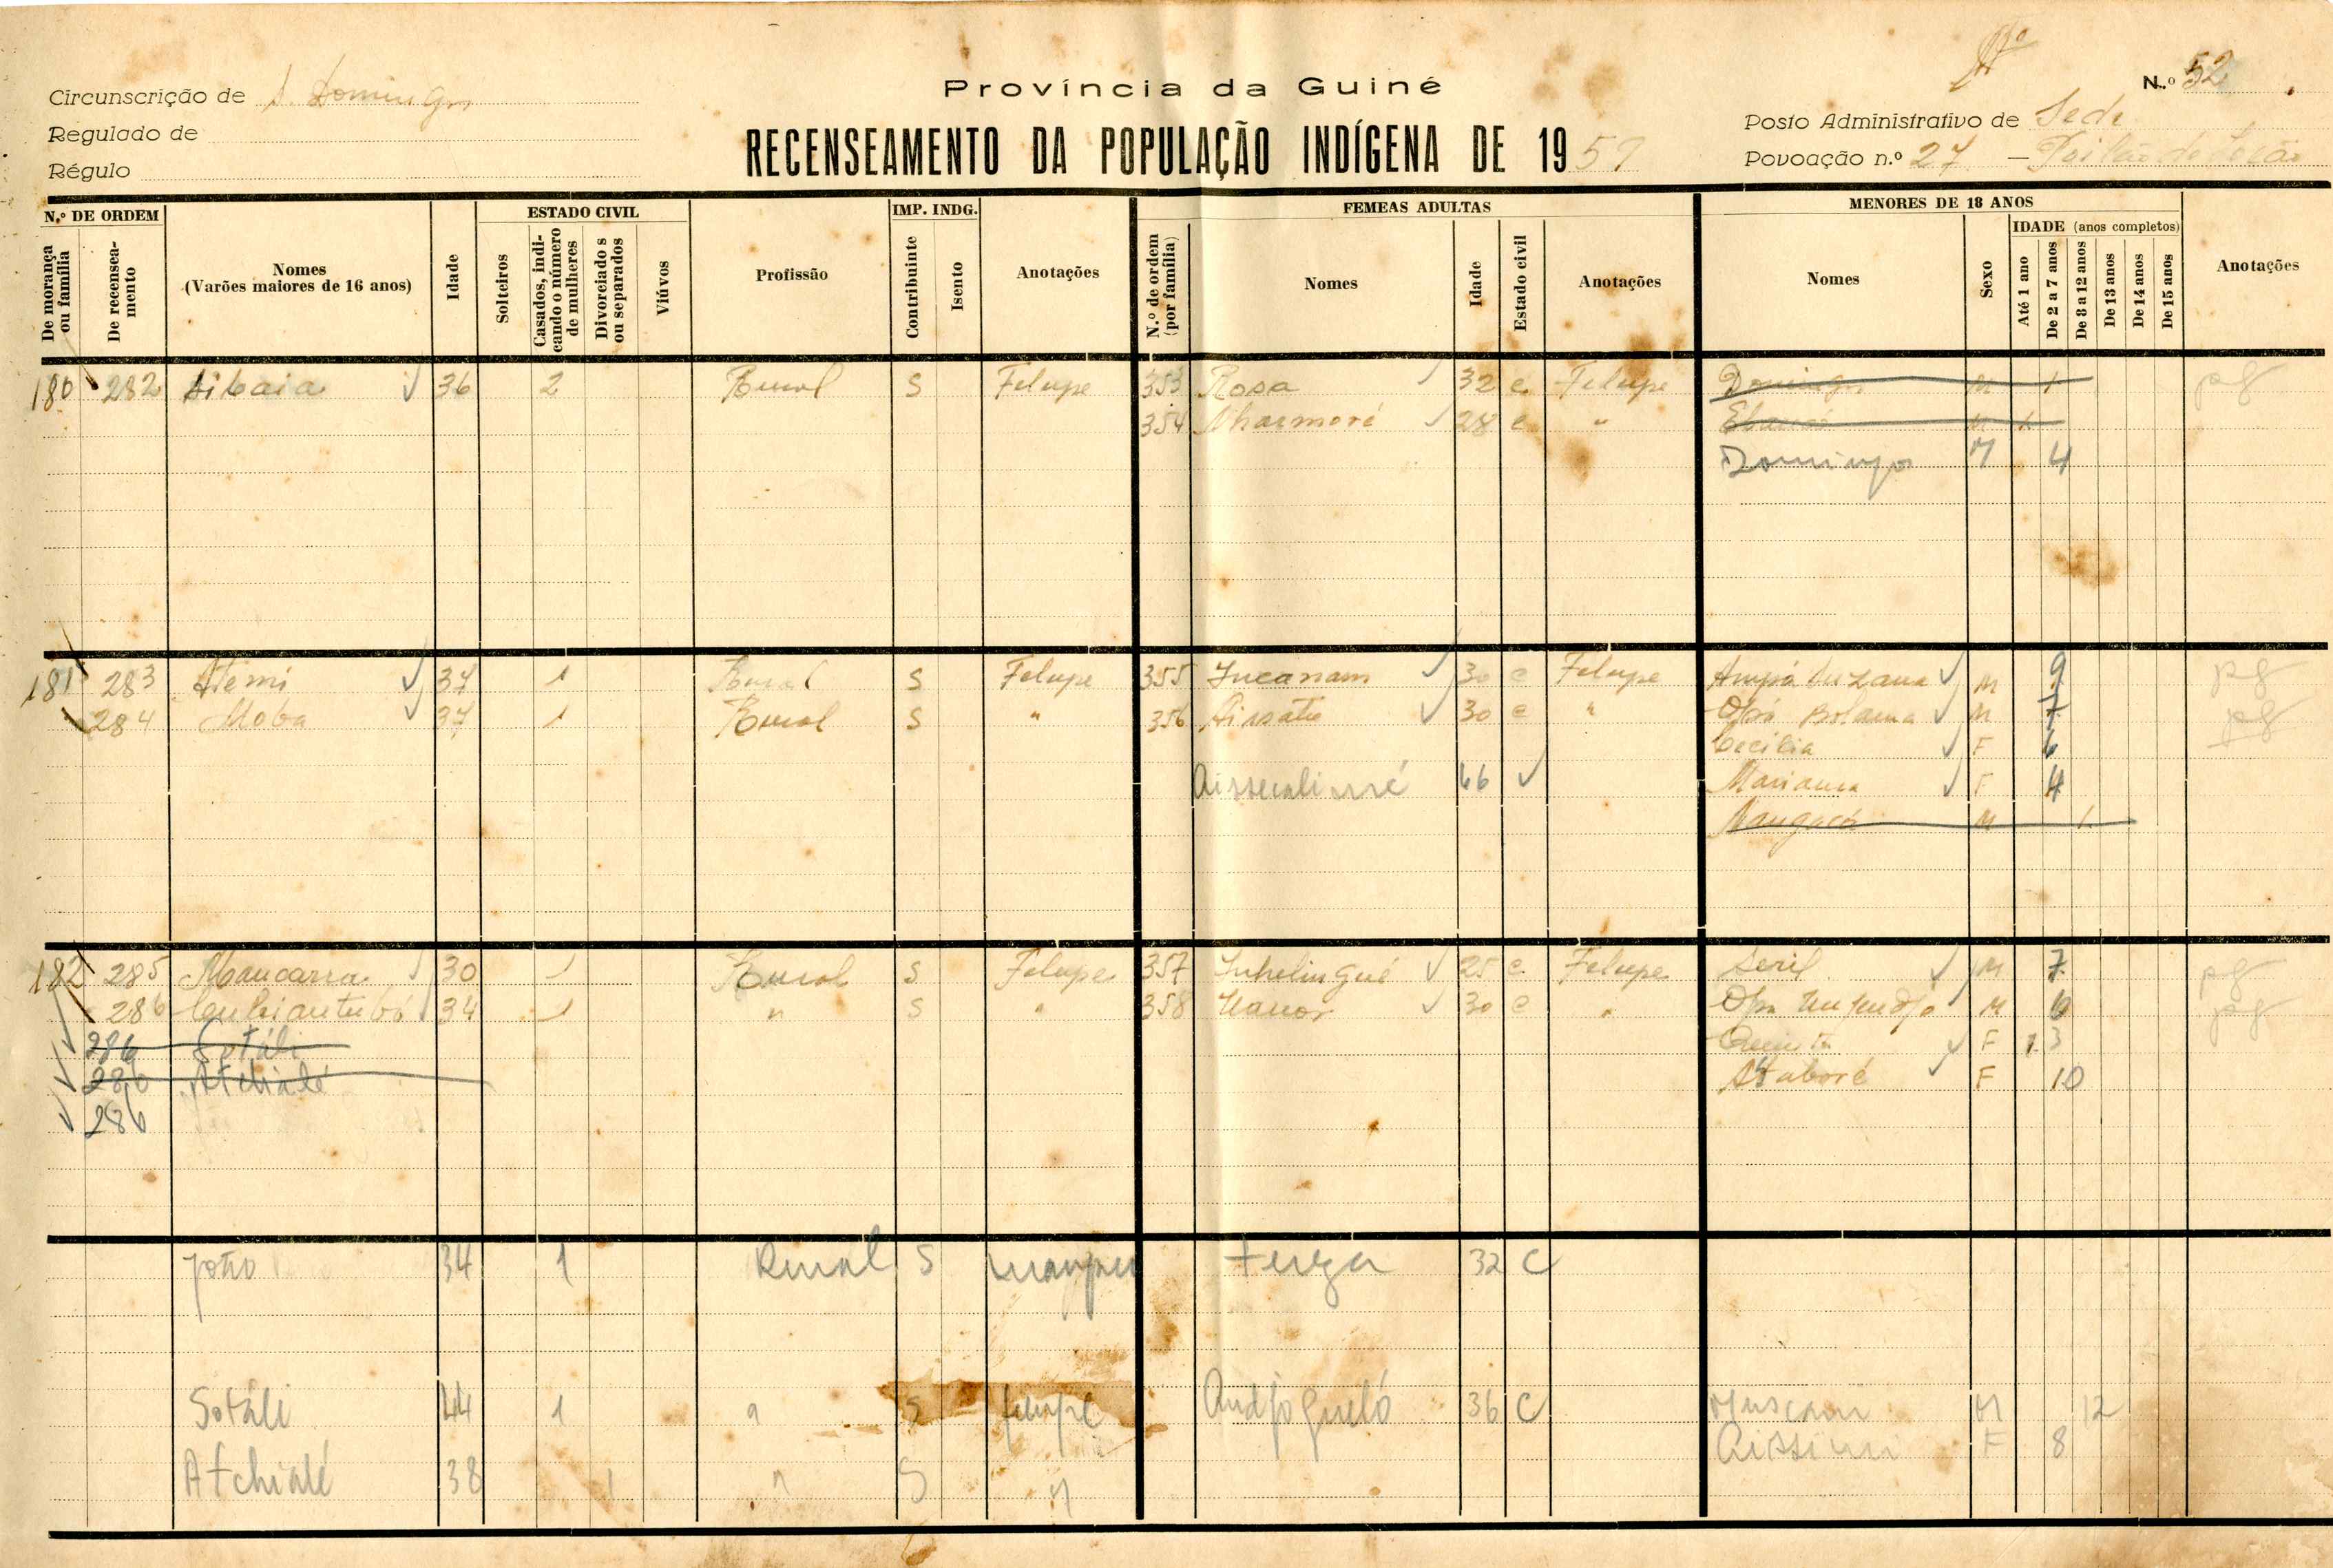 Província da Guiné
N.º 52
Circunscrição de S. Domingos
Posto Administrativo de Sede
Regulado de
RECENSEAMENTO DA POPULAÇÃO INDÍGENA DE 195
Povoação n.º 27 —
Régulo
N.º DE ORDEM
ESTADO CIVIL
IMP. INDG.
FEMEAS ADULTAS
MENORES DE 18 ANOS
IDADE (anos completos)
De morança ou família
De recenseamento
Nomes
(Varões maiores de 16 anos)
Idade
Solteiros
Casados, indicando o número de mulheres
Divorciados ou separados
Viúvos
Profissão
Contribuinte
Isento
Anotações
N.º de ordem (por família)
Nomes
Idade
Estado civil
Anotações
Nomes
Sexo
Até 1 ano
De 2 a 7 anos
De 8 a 12 anos
De 13 anos
De 14 anos
De 15 anos
Anotações
180 282 Aibaia 36 2 Rural S Felupe 353 Rosa 32 c Felupe Domingos M 1 pg
354 Nharmoré 28 c " M 1
Domingos M 4
181 283 Atemi 37 1 Rural S Felupe 355 30 c Felupe Ampá Luzana M 9 pg
284 Moba 37 1 Rural S " 356 Aissatu 30 c " Opá Bolama M 7 pg
Cecília F 6
66 Mariama F 4
M 1
182 285 Mancarra 30 1 Rural S Felupe 357 Juhelingué 25 c Felupe Seril M 7 pg
286 34 1 " S " 358 30 c " M 6 pg
286 Sotáli F 3
286 Atchialé F 10
286
João 34 1 Rural S 32 C
Sotáli 44 1 " S felupe 36 C M 12
F 8
Atchialé 38 1 " S "